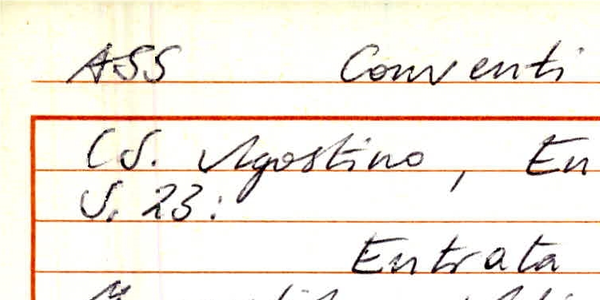 ASS Conventi
(S. Agostino, En
S. 23:
Entrata